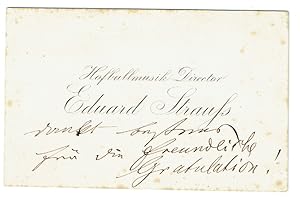 Hofballmusik-Director
Eduard Strauß
dankt bestens
für die freundliche
Gratulation!